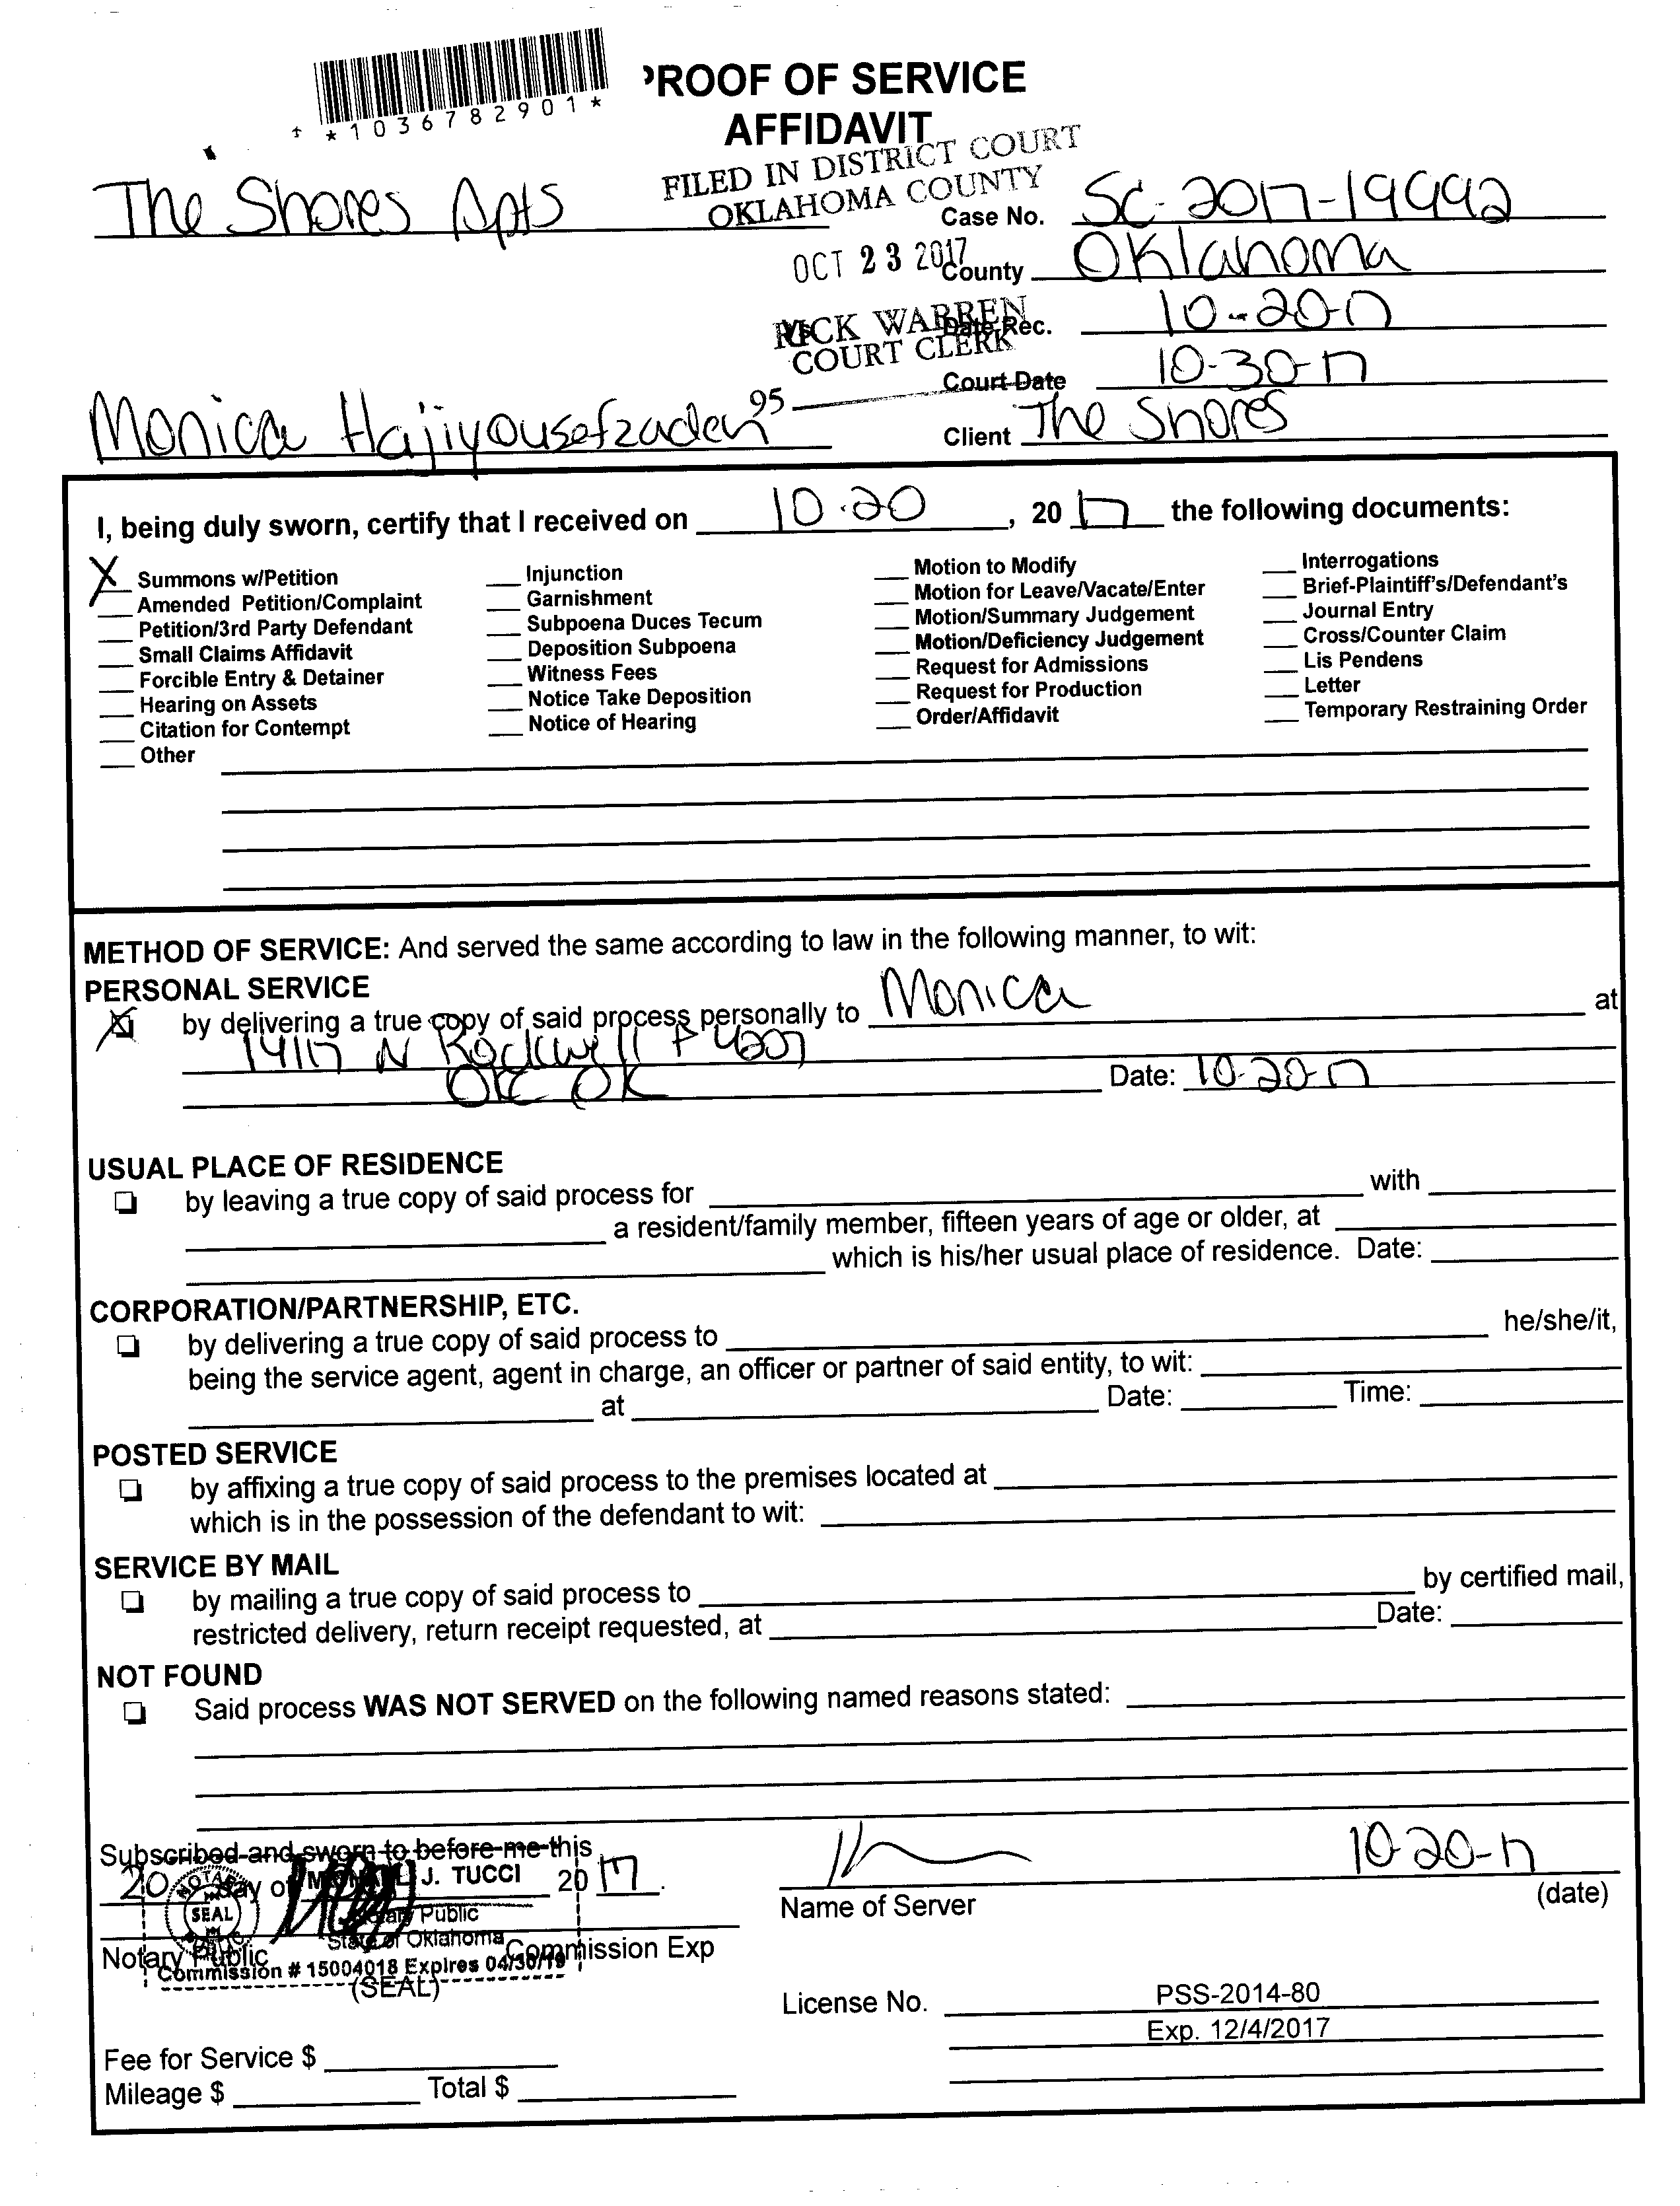 *1036782901*
PROOF OF SERVICE
AFFIDAVIT
FILED IN DISTRICT COURT
OKLAHOMA COUNTY
The Shores Apts
Case No. SC-2017-19992
OCT 23 2017
County Oklahoma
RICK WARREN
COURT CLERK
Vs.
Date Rec. 10-20-17
Court Date 10-30-17
95
Monica Hajiyousefzadeh
Client The Shores
I, being duly sworn, certify that I received on 10.20, 20 17 the following documents:
X Summons w/Petition
Amended Petition/Complaint
Petition/3rd Party Defendant
Small Claims Affidavit
Forcible Entry & Detainer
Hearing on Assets
Citation for Contempt
Other
Injunction
Garnishment
Subpoena Duces Tecum
Deposition Subpoena
Witness Fees
Notice Take Deposition
Notice of Hearing
Motion to Modify
Motion for Leave/Vacate/Enter
Motion/Summary Judgement
Motion/Deficiency Judgement
Request for Admissions
Request for Production
Order/Affidavit
Interrogations
Brief-Plaintiff's/Defendant's
Journal Entry
Cross/Counter Claim
Lis Pendens
Letter
Temporary Restraining Order
METHOD OF SERVICE: And served the same according to law in the following manner, to wit:
PERSONAL SERVICE
X by delivering a true copy of said process personally to Monica at
14117 N Rockwell
OKC OK Date: 10-20-17
USUAL PLACE OF RESIDENCE
by leaving a true copy of said process for with
a resident/family member, fifteen years of age or older, at
which is his/her usual place of residence. Date:
CORPORATION/PARTNERSHIP, ETC.
by delivering a true copy of said process to he/she/it,
being the service agent, agent in charge, an officer or partner of said entity, to wit:
at Date: Time:
POSTED SERVICE
by affixing a true copy of said process to the premises located at
which is in the possession of the defendant to wit:
SERVICE BY MAIL
by mailing a true copy of said process to by certified mail,
restricted delivery, return receipt requested, at Date:
NOT FOUND
Said process WAS NOT SERVED on the following named reasons stated:
Subscribed and sworn to before me this
20 day of 20 17.
J. TUCCI
NOTARY
SEAL
Notary Public
State of Oklahoma
Commission # 15004018 Expires 04/30/19
Notary Public Commission Exp
(SEAL)
10-20-17
Name of Server (date)
License No. PSS-2014-80
Exp. 12/4/2017
Fee for Service $
Mileage $ Total $